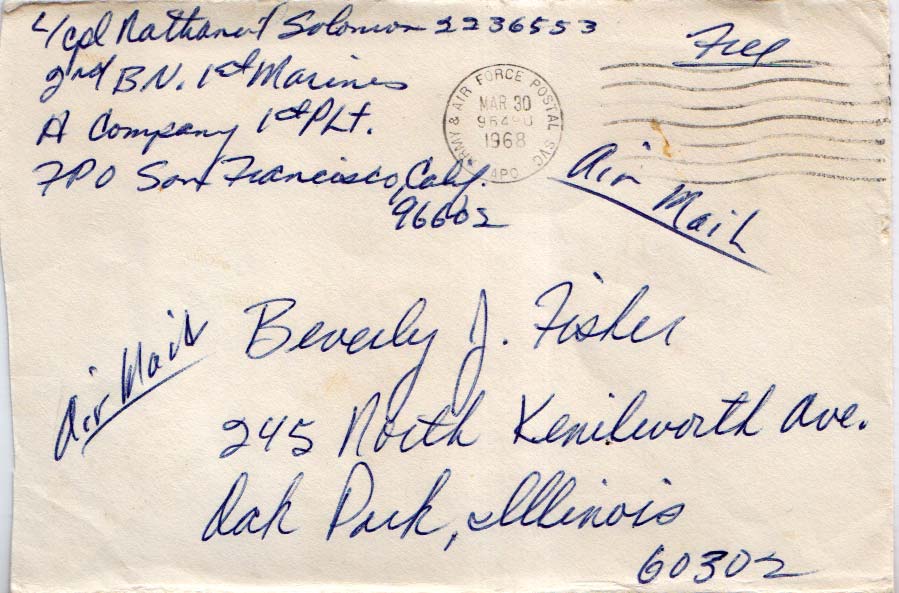 L/cpl Nathaniel Solomon 2236553
2nd BN. 1st Marines
A Company 1st PLt.
FPO San Francisco, Calif.
96602
Free
ARMY & AIR FORCE POSTAL SVC
MAR 30
1968
APO
Air Mail
Air Mail
Beverly J. Fisher
245 North Kenilworth Ave.
Oak Park, Illinois
60302